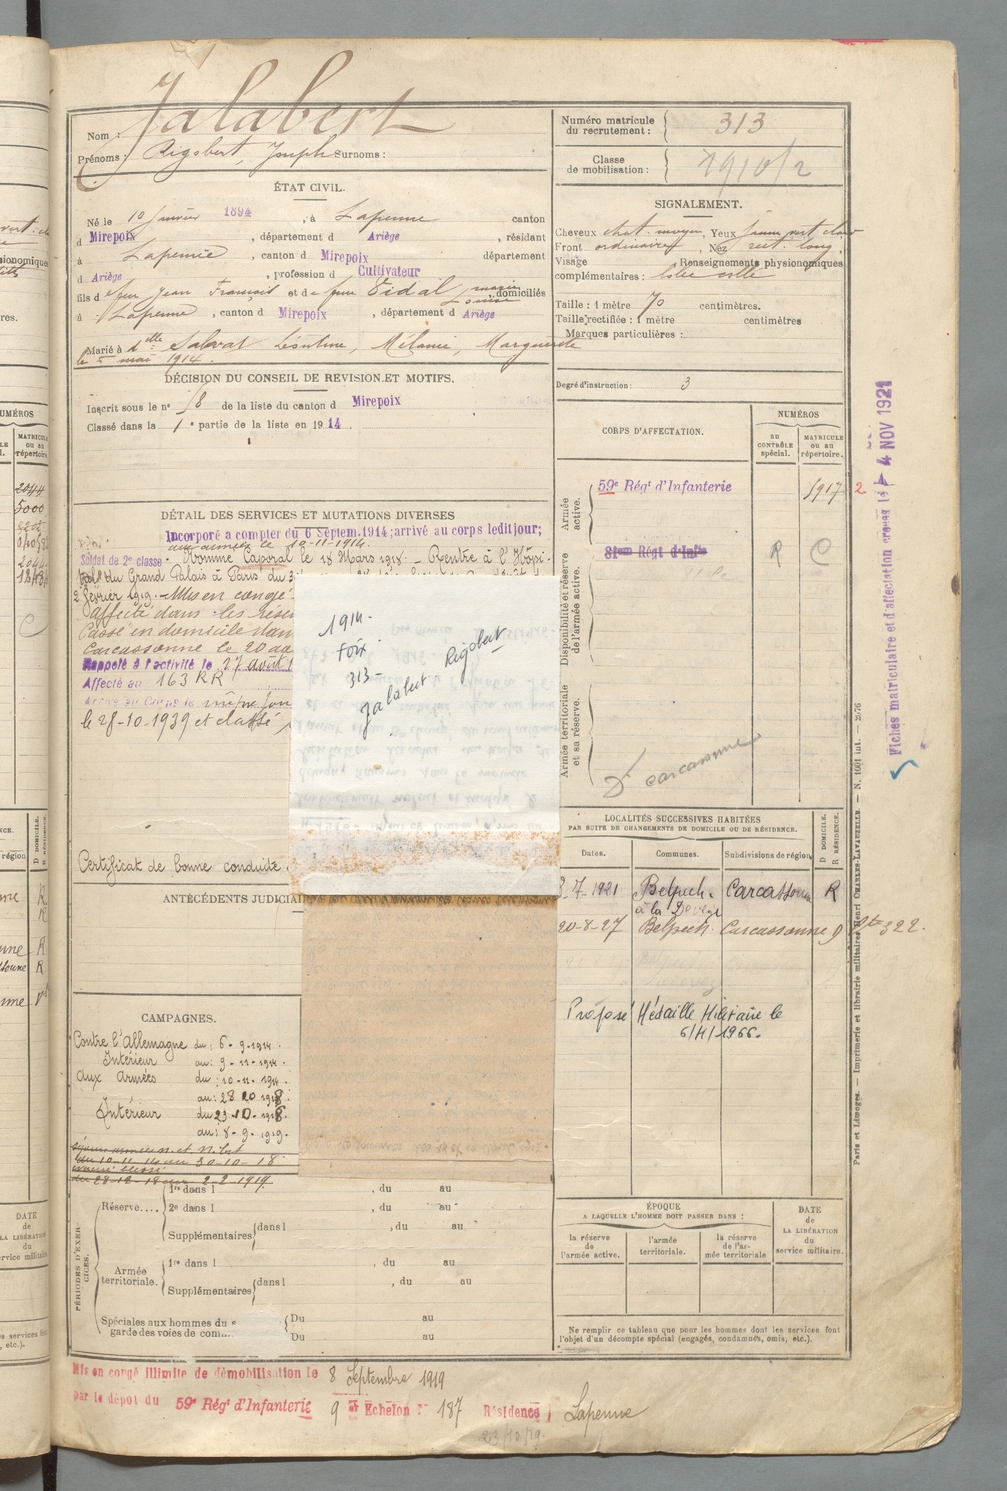 Jalabert
Nom :
Prénoms : Rigobert, Joseph Surnoms :
Numéro matricule du recrutement : 313
Classe de mobilisation : 1910/2
ÉTAT CIVIL.
Né le 10 Janvier 1894, à Lapenne canton
d Mirepoix, département d Ariège, résidant
à Lapenne, canton d Mirepoix département
d Ariège, profession d Cultivateur
fils d feu Jean François et de feue Vidal Marie Louise domiciliés
à Lapenne, canton d Mirepoix, département d Ariège
Marié à dlle Salvat Léontine, Mélanie, Marguerite
le 5 mai 1914.
SIGNALEMENT.
Cheveux chat. moyen, Yeux jaune vert clair
Front ordinaire, Nez rect. long
Visage Renseignements physionomiques
complémentaires :
Taille : 1 mètre 70 centimètres.
Taille rectifiée : 1 mètre centimètres
Marques particulières :
Degré d'instruction : 3
DÉCISION DU CONSEIL DE REVISION ET MOTIFS.
Inscrit sous le n° 18 de la liste du canton d Mirepoix
Classé dans la 1e partie de la liste en 1914.
CORPS D'AFFECTATION.
NUMÉROS
au CONTRÔLE spécial.
MATRICULE ou au répertoire.
Armée active.
59e Régt d'Infanterie
1917
2
Disponibilité et réserve de l'armée active.
81eme Régt d'Infie
R
Armée territoriale et sa réserve.
Dt carcassonne
DÉTAIL DES SERVICES ET MUTATIONS DIVERSES
Incorporé a compter du 6 Septem. 1914; arrivé au corps ledit jour;
aux armées le 10-11-1914.
Soldat de 2e classe. Nommé Caporal le 18 Mars 1918. Rentre à l'Hôpi-
tal du Grand Palais à Paris du 3
2 février 1919. Mis en congé
affecté dans les rés
Passé en domicile dan
Carcassonne le 20 ao
Rappelé à l'activité le 27 août 1
Affecté au 163 RR
Arrivé au Corps le même jou
le 28-10-1939 et classé
1914.
Foix
313
Jalabert Rigobert
Certificat de bonne conduite
ANTÉCÉDENTS JUDICIAI
LOCALITÉS SUCCESSIVES HABITÉES
PAR SUITE DE CHANGEMENTS DE DOMICILE OU DE RÉSIDENCE.
Dates. Communes. Subdivisions de région D DOMICILE. R RÉSIDENCE.
3-7-1921 Belpech Carcassonne R
à la Devèze
20-8-27 Belpech. Carcassonne D 322.
Proposé Médaille Militaire le
6/4/1966.
CAMPAGNES.
Contre l'Allemagne du: 6-9-1914
Intérieur au: 9-11-1914.
Aux Armées du: 10-11-1914.
au: 28 10 1918
Intérieur du 29-10-1918.
au: 8-9-1919.
du 10-11-14 au 30-10-18
blessé
du 28-12-18 au 2-2-1919.
PÉRIODES D'EXERCICES.
Réserve.... 1re dans l , du au
2e dans l , du au
Supplémentaires dans l , du au
Armée territoriale. 1re dans l , du au
Supplémentaires dans l , du au
Spéciales aux hommes du s
garde des voies de com...
Du au
Du au
ÉPOQUE
A LAQUELLE L'HOMME DOIT PASSER DANS :
la réserve de l'armée active.
l'armée territoriale.
la réserve de l'armée territoriale
DATE de LA LIBÉRATION du service militaire.
Ne remplir ce tableau que pour les hommes dont les services font
l'objet d'un décompte spécial (engagés, condamnés, omis, etc.).
Mis en congé illimité de démobilisation le 8 Septembre 1919
par le dépot du 59e Régt d'Infanterie 9 e Echelon N° 187 Résidence Lapenne
23/10/19.
Fiches matriculaire et d'affectation créées le 4 NOV 1921
Paris et Limoges. — Imprimerie et librairie militaires Henri CHARLES-LAVAUZELLE. — N. 1001 int. — 2976